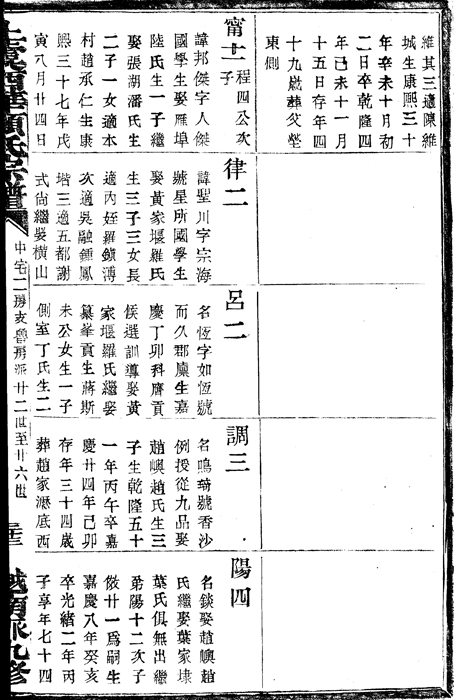 維其三適陳維
城生康熙三十
年辛未十月初
二日卒乾隆四
年己未十一月
十五日存年四
十九歲葬父塋
東側
甯十二 程四公次子
諱邦傑字人傑
國學生娶雁埠
陸氏生一子繼
娶張湖潘氏生
二子一女適本
村趙承仁生康
熙三十七年戊
寅八月廿四日
律二
諱聖川字宗海
號星所國學生
娶黃家堰羅氏
生三子三女長
適內姪羅鎮溥
次適吳融鍾鳳
堦三適五都謝
式尚繼娶橫山
呂二
名恆字如恆號
而久郡廩生嘉
慶丁卯科膺貢
候選訓導娶黃
家堰羅氏繼娶
纂峯貢生蔣斯
未公女生一子
側室丁氏生二
調三
名鳴琦號香沙
例授從九品娶
趙嶼趙氏生三
子生乾隆五十
一年丙午卒嘉
慶廿四年己卯
存年三十四歲
葬趙家瀝底西
陽四
名錟娶趙嶼趙
氏繼娶葉家埭
葉氏俱無出繼
弟陽十二次子
倣廿一為嗣生
嘉慶八年癸亥
卒光緒二年丙
子享年七十四
中宅二房亥魯房派廿二世至廿六世